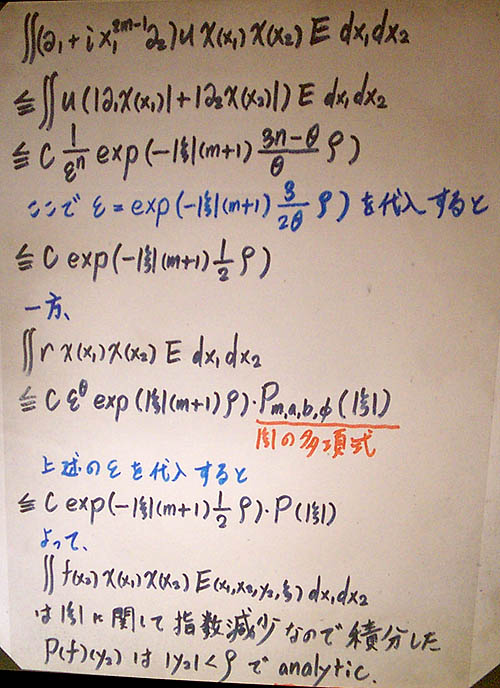 ∬(∂₁+i x₁^{2m-1}∂₂)u χ(x₁)χ(x₂) E dx₁dx₂
≦∬u(|∂₁χ(x₁)|+|∂₂χ(x₂)|) E dx₁dx₂
≦ C 1/ε^n exp(-|ξ|(m+1) (3n-θ)/θ ρ)
ここで ε = exp(-|ξ|(m+1) 3/2θ ρ) を代入すると
≦ C exp(-|ξ|(m+1) 1/2 ρ)
一方、
∬r χ(x₁)χ(x₂) E dx₁dx₂
≦ C ε^θ exp(|ξ|(m+1)ρ)・P_{m,a,b,φ}(|ξ|)
|ξ|の多項式
上述のεを代入すると
≦ C exp(-|ξ|(m+1) 1/2 ρ)・P(|ξ|)
よって、
∬f(x₂)χ(x₁)χ(x₂) E(x₁,x₂,y₂,ξ) dx₁dx₂
は|ξ|に関して指数減少なので積分した
P(f)(y₂) は |y₂|<ρ で analytic.